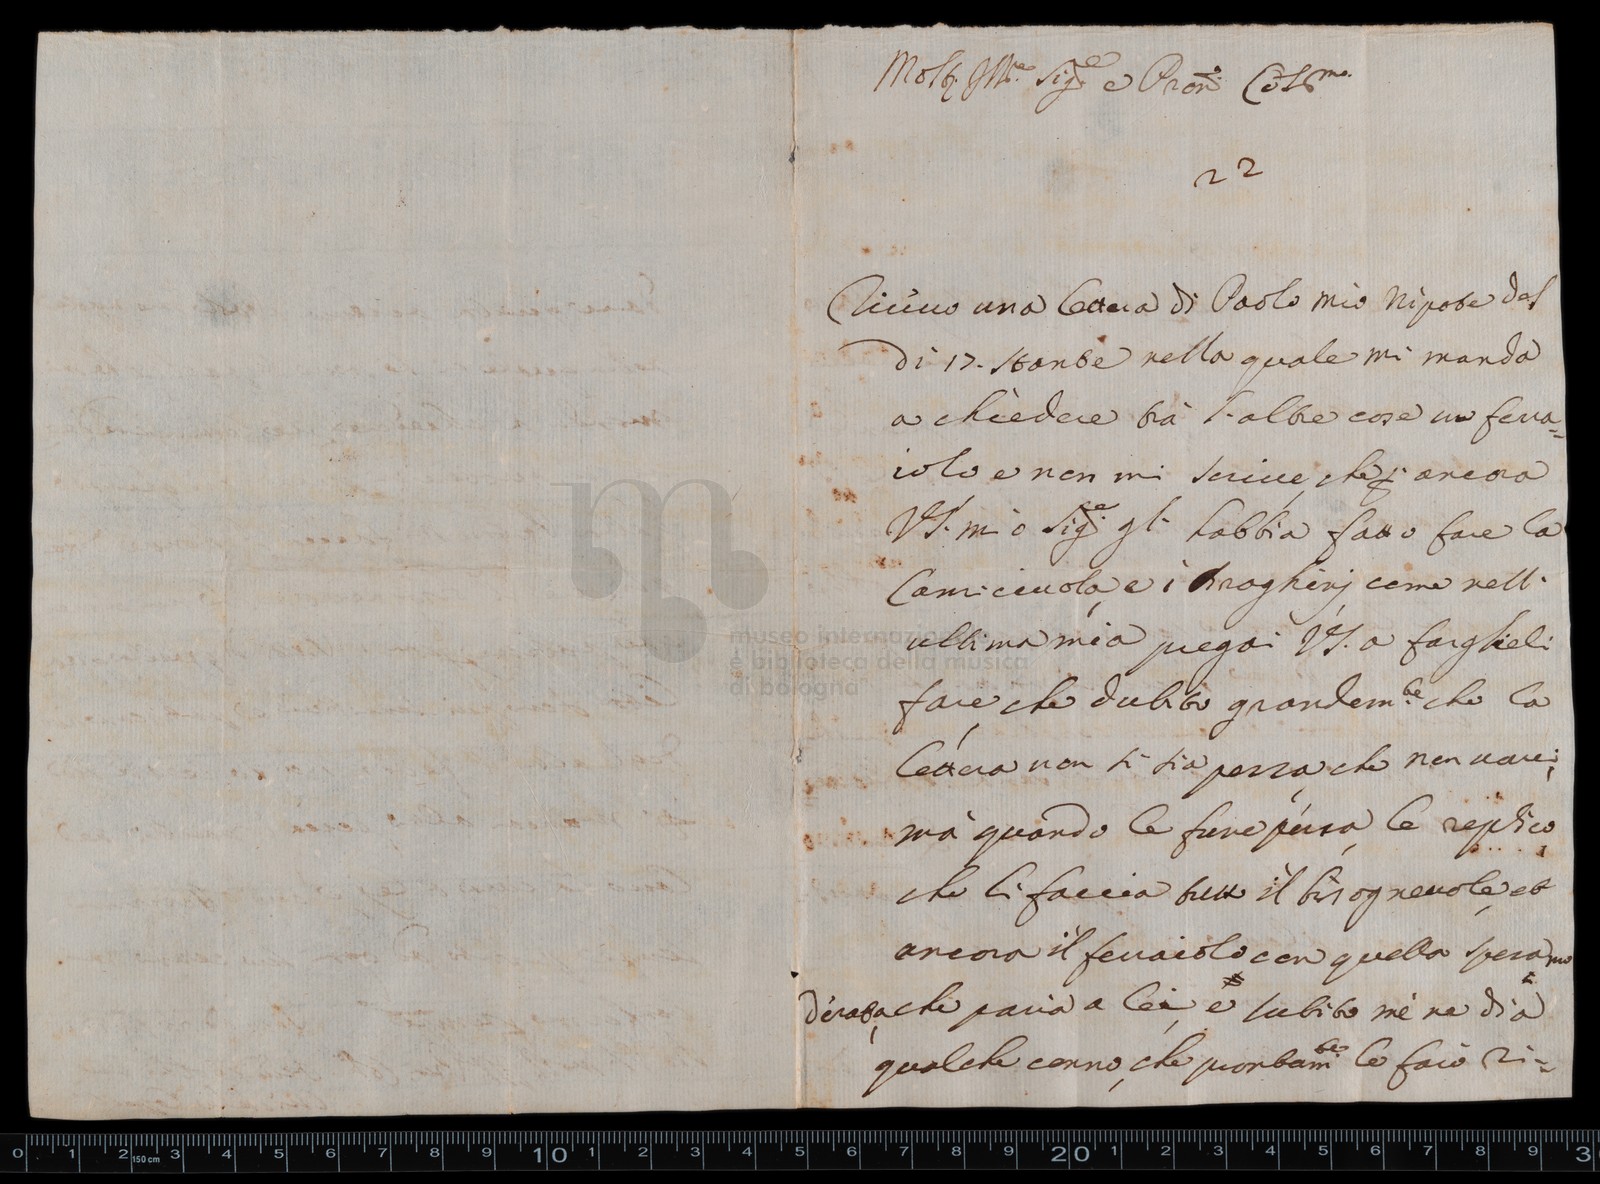 Molt. Ill.re Sig.re e Pron. Col.mo
22
Riceuo una lettera di Paolo mio Nipote del
di 17. stante nella quale mi manda
a chiedere trà l'altre cose un ferra=
iolo e non mi scriue, che ancora
VS. mio Sig.re gl' habbia fatto fare la
Camiciuola, e i come nell'
ultima mia pregai VS. a farglieli
fare, che dubito grandem.te che la
lettera non si sia persa, che non uorei;
mà quando le fusse persa, le replico
che li faccia tutto il bisogneuole, et
ancora il ferraiolo con quella spesa
che paria a lei, e subito mè ne dia
qualche cenno, che prontam.te le farò ri=
museo internazionale
e biblioteca della musica
di bologna
0 1 2 150 cm 3 4 5 6 7 8 9 10 1 2 3 4 5 6 7 8 9 20 1 2 3 4 5 6 7 8 9 3